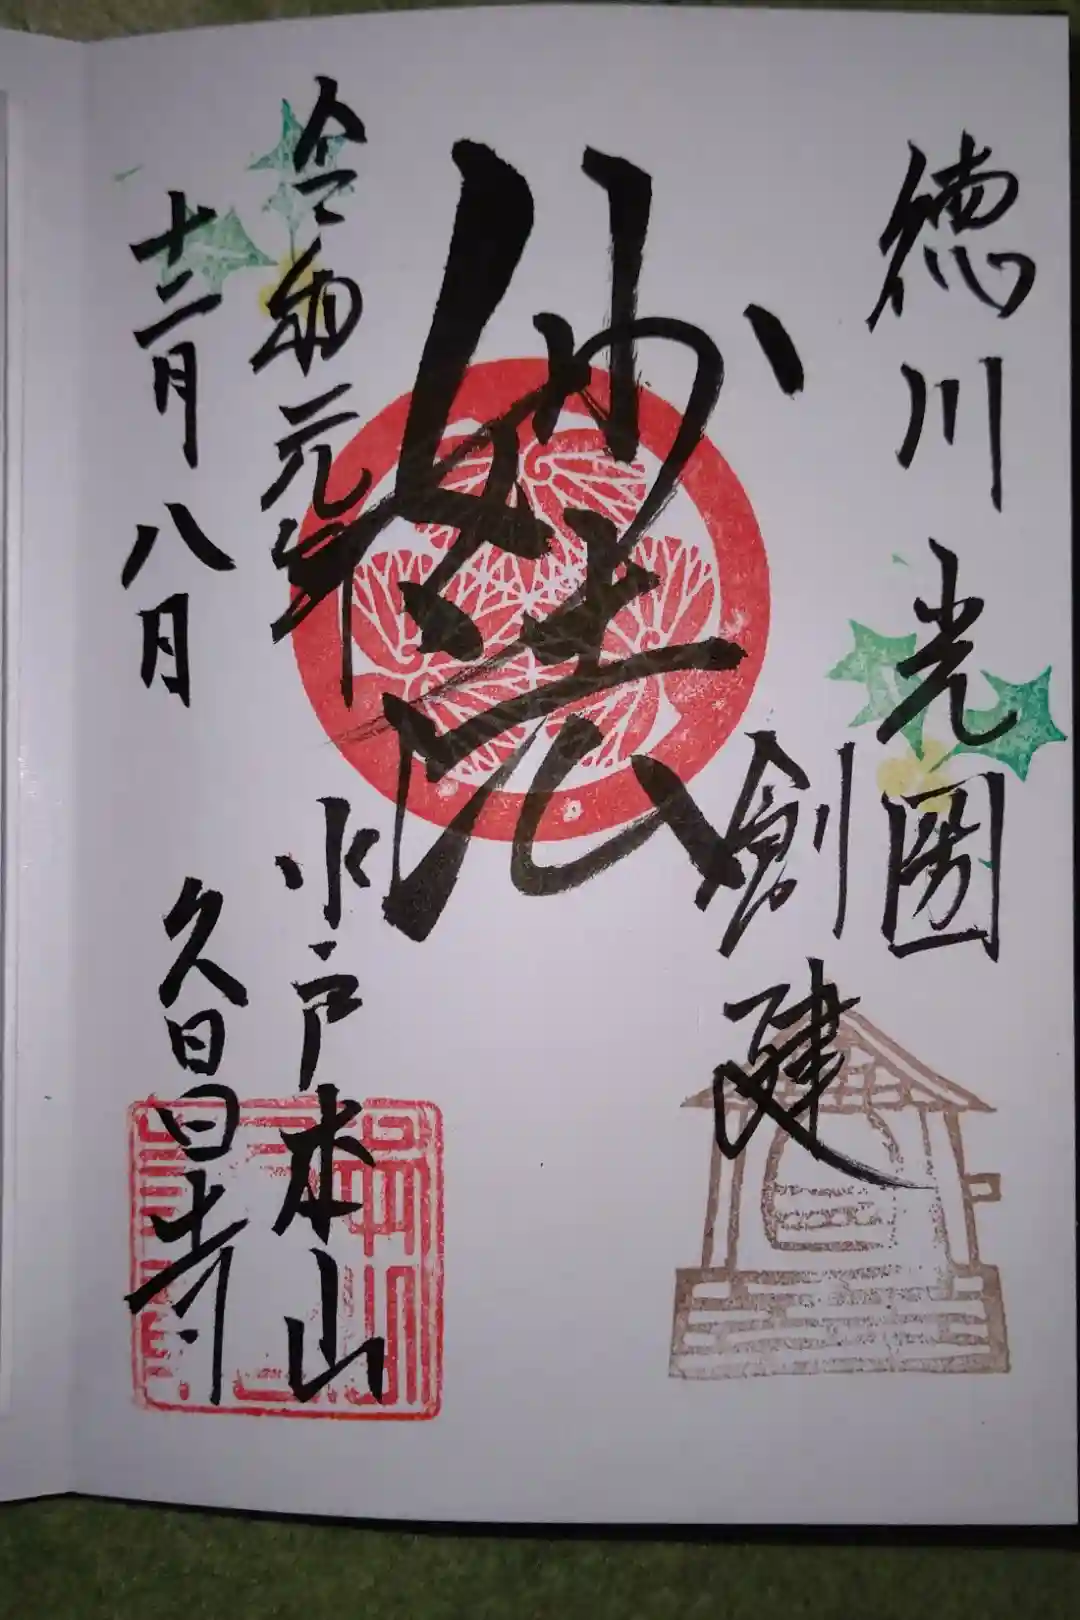 徳川光圀
創建
妙法
水戸本山
令和元年
十二月八日
久昌寺